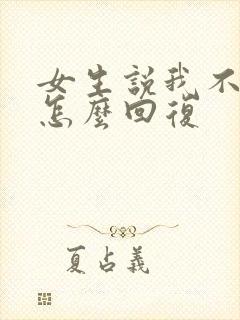 女生説我不
怎麼回復
夏占義